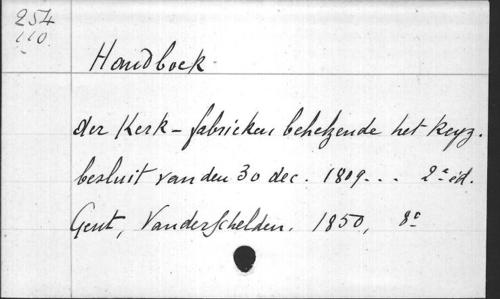 254
110.
Handboek
der Kerk-fabrieken behelzende het Keyz.
besluit van den 30 dec. 1809... 2e éd.
Gent, Vanderschelden. 1850, 8°